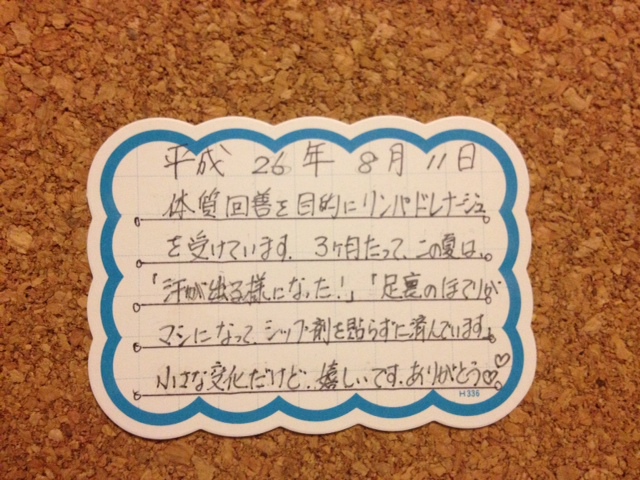 平成 26 年 8月 11日
体質回善を目的にリンパドレナージュ
を受けています. 3ヶ月たって、この夏は、
「汗が出る様になった!」「足裏のほてりが
マシになって、シップ剤を貼らずに済んでいます。
小さな変化だけど、嬉しいです。ありがとう♡♡
H336